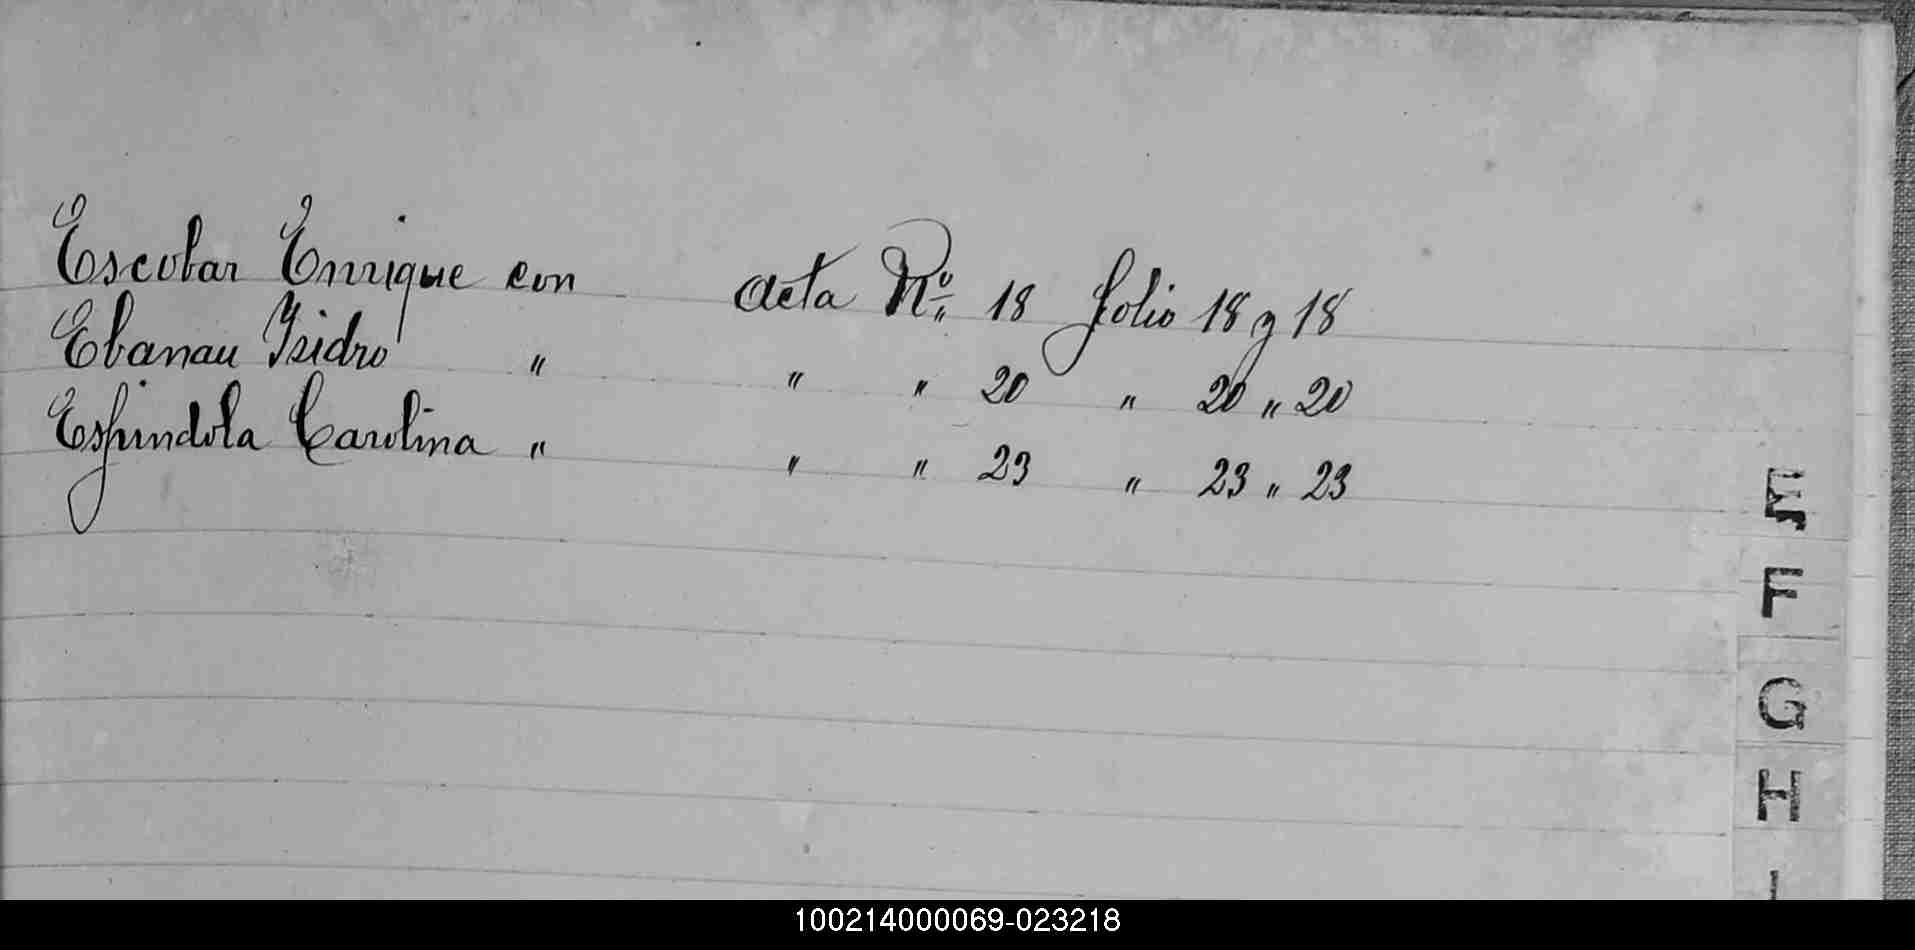 Escobar Enrique con acta Nº 18 folio 18 y 18
Ebanau Isidro " " " 20 " 20 " 20
Espindola Carolina " " " 23 " 23 " 23
E
F
G
H
I
100214000069-023218